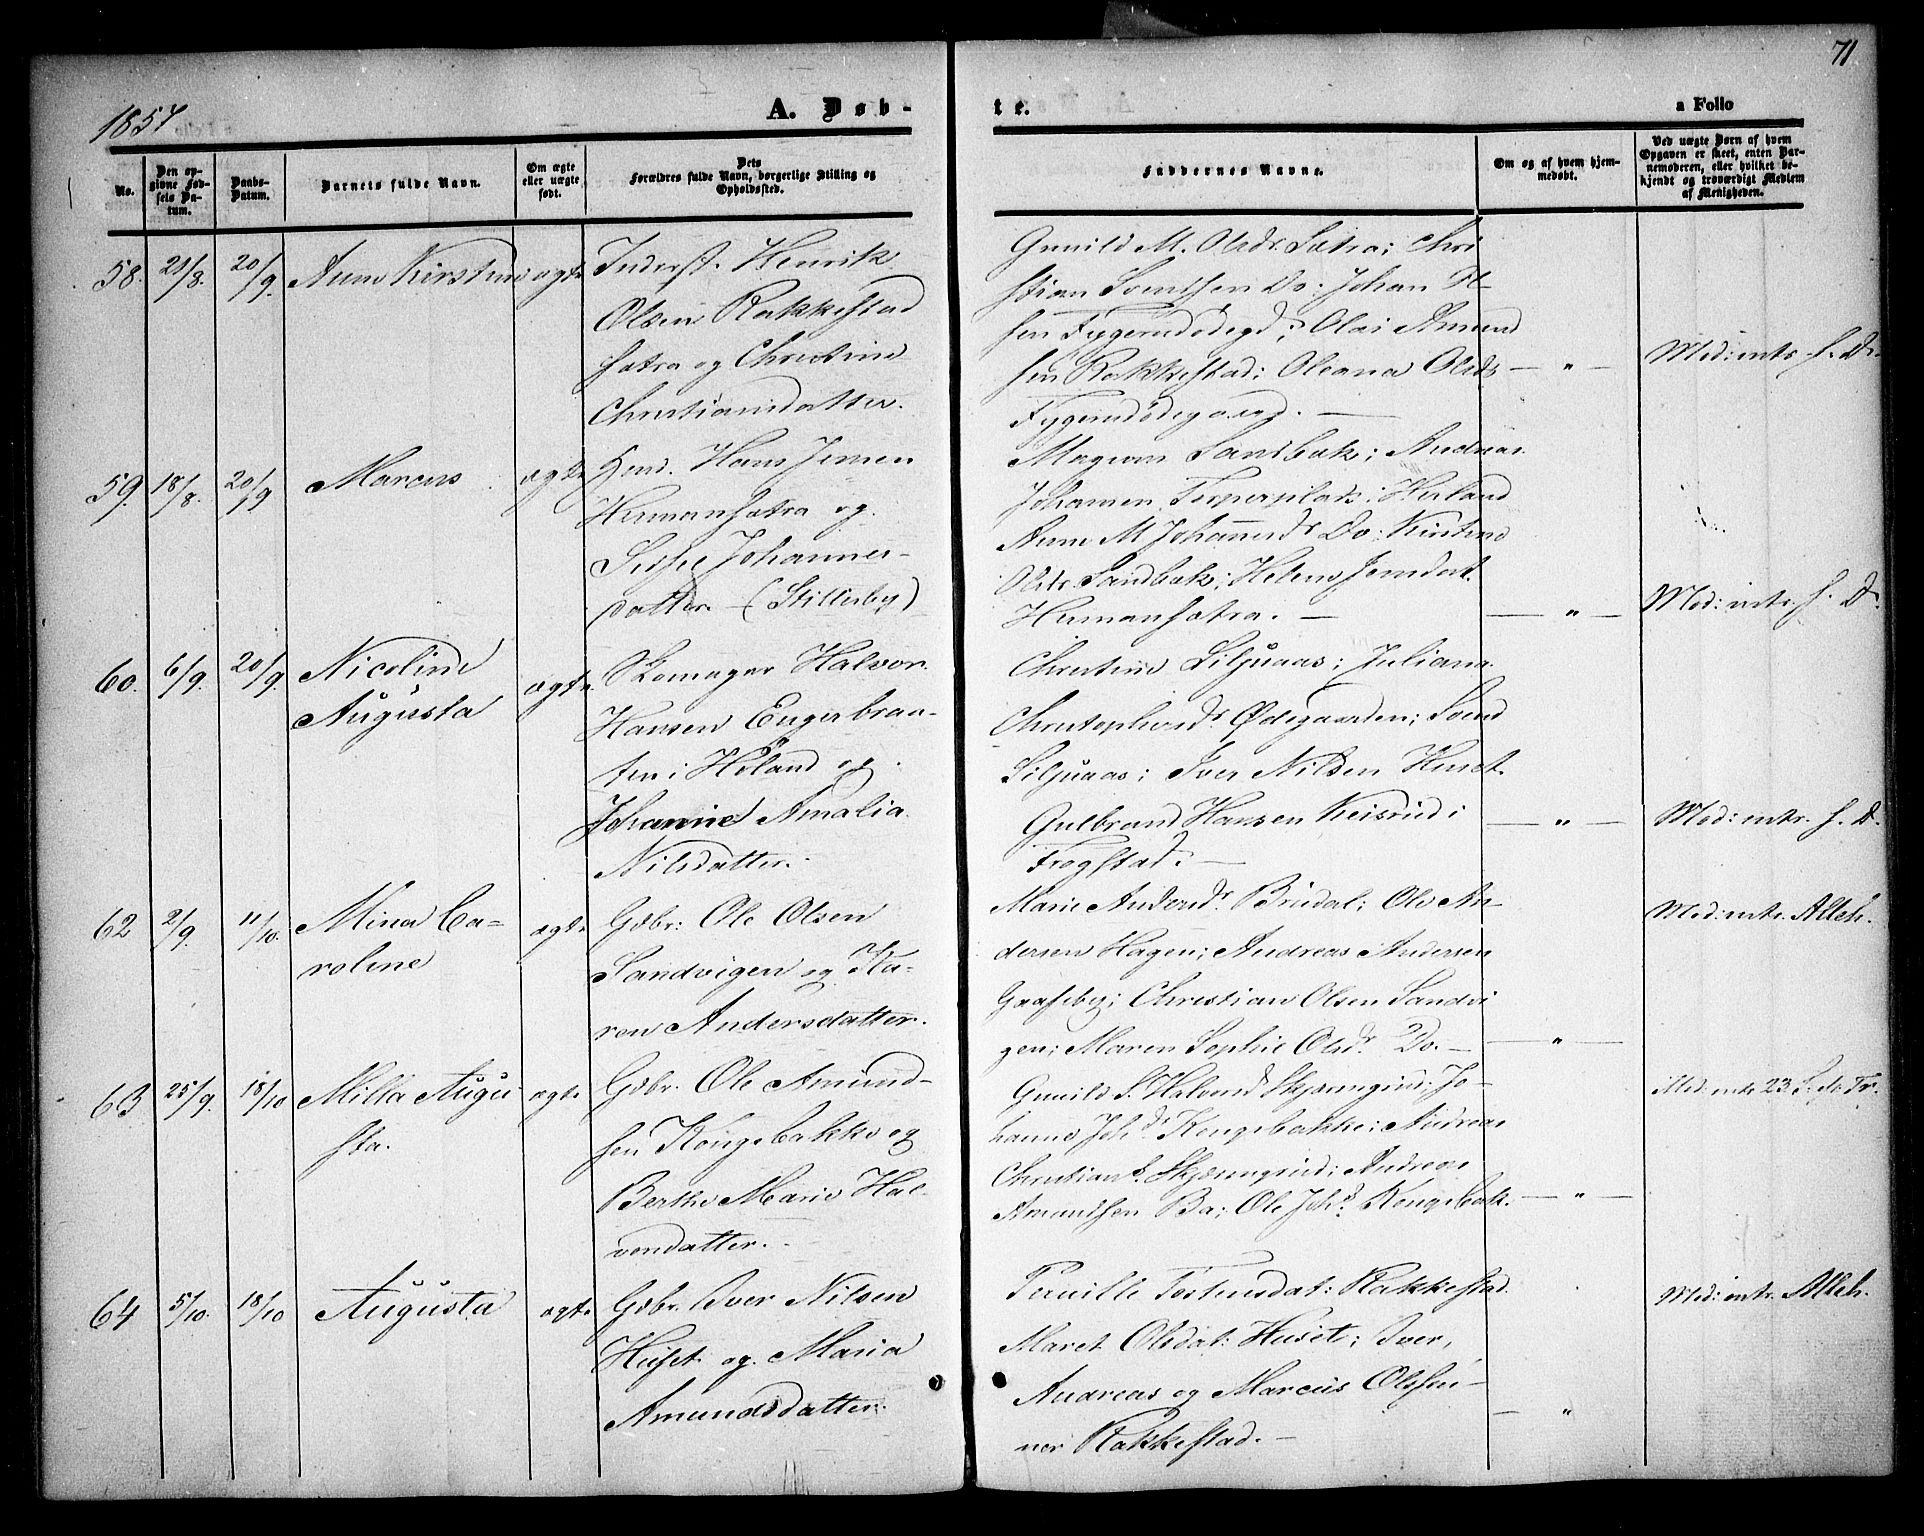 71
1857
A. Døb-
te.
a Folio
No.
Den op-
givne Fød-
sels Da-
tum.
Daabs-
Datum.
Barnets fulde Navn.
Om ægte
eller uægte
født.
Dets
Forældres fulde Navn, borgerlige Stilling og
Opholdssted.
Faddernes Navne.
Om og af hvem hjem-
medøbt.
Ved uægte Børn af hvem
Opgaven er skeet, enten Bar-
nemoderen, eller hvilket be-
kjendt og troværdigt Medlem
af Menigheden.
58. 21/8. 20/9. Anne Kirstine ægte
Inderst. Henrik
Olsen Rakkestad
sætra og Christine
Christiansdatter.
Gunild M. Olsdr. Sætra; Chri
stian Svendsen Do; Johan H-
sen Fygerudødegd; Olai Amund
sen Rakkestad; Oleana Olsdr
Fygerudødegaard. —
— " —
Med: intr. s. D.
59. 18/8. 20/9 Marcus ægte
Hmd. Hans Jensen
Hermansætra og
Sidse Johannes-
datter. — (Stillerby)
Magnus Sandbæk; Andreas
Johansen Torperplads; Herland
Anne M Johannesdr Do; Kirstine
Olsdr Sandbæk; Helene Jensdat.
Hermansætra. —
— " —
Med: intr. s. D.
60. 6/9. 20/9. Nicoline
Augusta
ægte.
Skomager Halvor
Hansen Engerbraa-
ten i Høland og
Johanne Amalia
Nilsdatter.
Christine Liljuaas; Juliana
Christophersdr Ødegaarden; Svend
Liljuaas; Iver Nilsen Huset.
Gulbrand Hansen Keisrud i
Trøgstad. —
— " —
Med: intr. s. D.
62 2/9. 11/10. Mina Ca-
roline
ægte
Gdbr: Ole Olsen
Sandvigen og Ka-
ren Andersdatter.
Marie Andersdr. Brudal; Ole An-
dersen Hagen; Andreas Andersen
Graaseby; Christian Olsen Sandvi
gen; Maren Sophie Olsdr. Do. —
— " —
Med: intr. Alleh.
63 25/9. 18/10 Milla Augu
sta.
ægte
Gdbr. Ole Amund-
sen Kongsbakke og
Berthe Marie Hal-
vorsdatter.
Gunild S. Halvorsd Skjærngrud; Jo-
hanne Johd. Kongsbakke; Andreas
Christians. Skjærngrud; Andreas
Amundsen Ba; Ole Joh. Kongsbak.
— " —
Med: intr. 23 S. e. Tr.
64 5/10. 18/10 Augusta ægte
Gdbr. Iver Nilsen
Huset og Maria
Amundsdatter.
Pernille Torstensdat: Rakkestad.
Maret Olsdat: Huset; Iver,
Andreas og Marcus Olssøn-
ner Rakkestad. —
— "
Med: intr. Alleh.